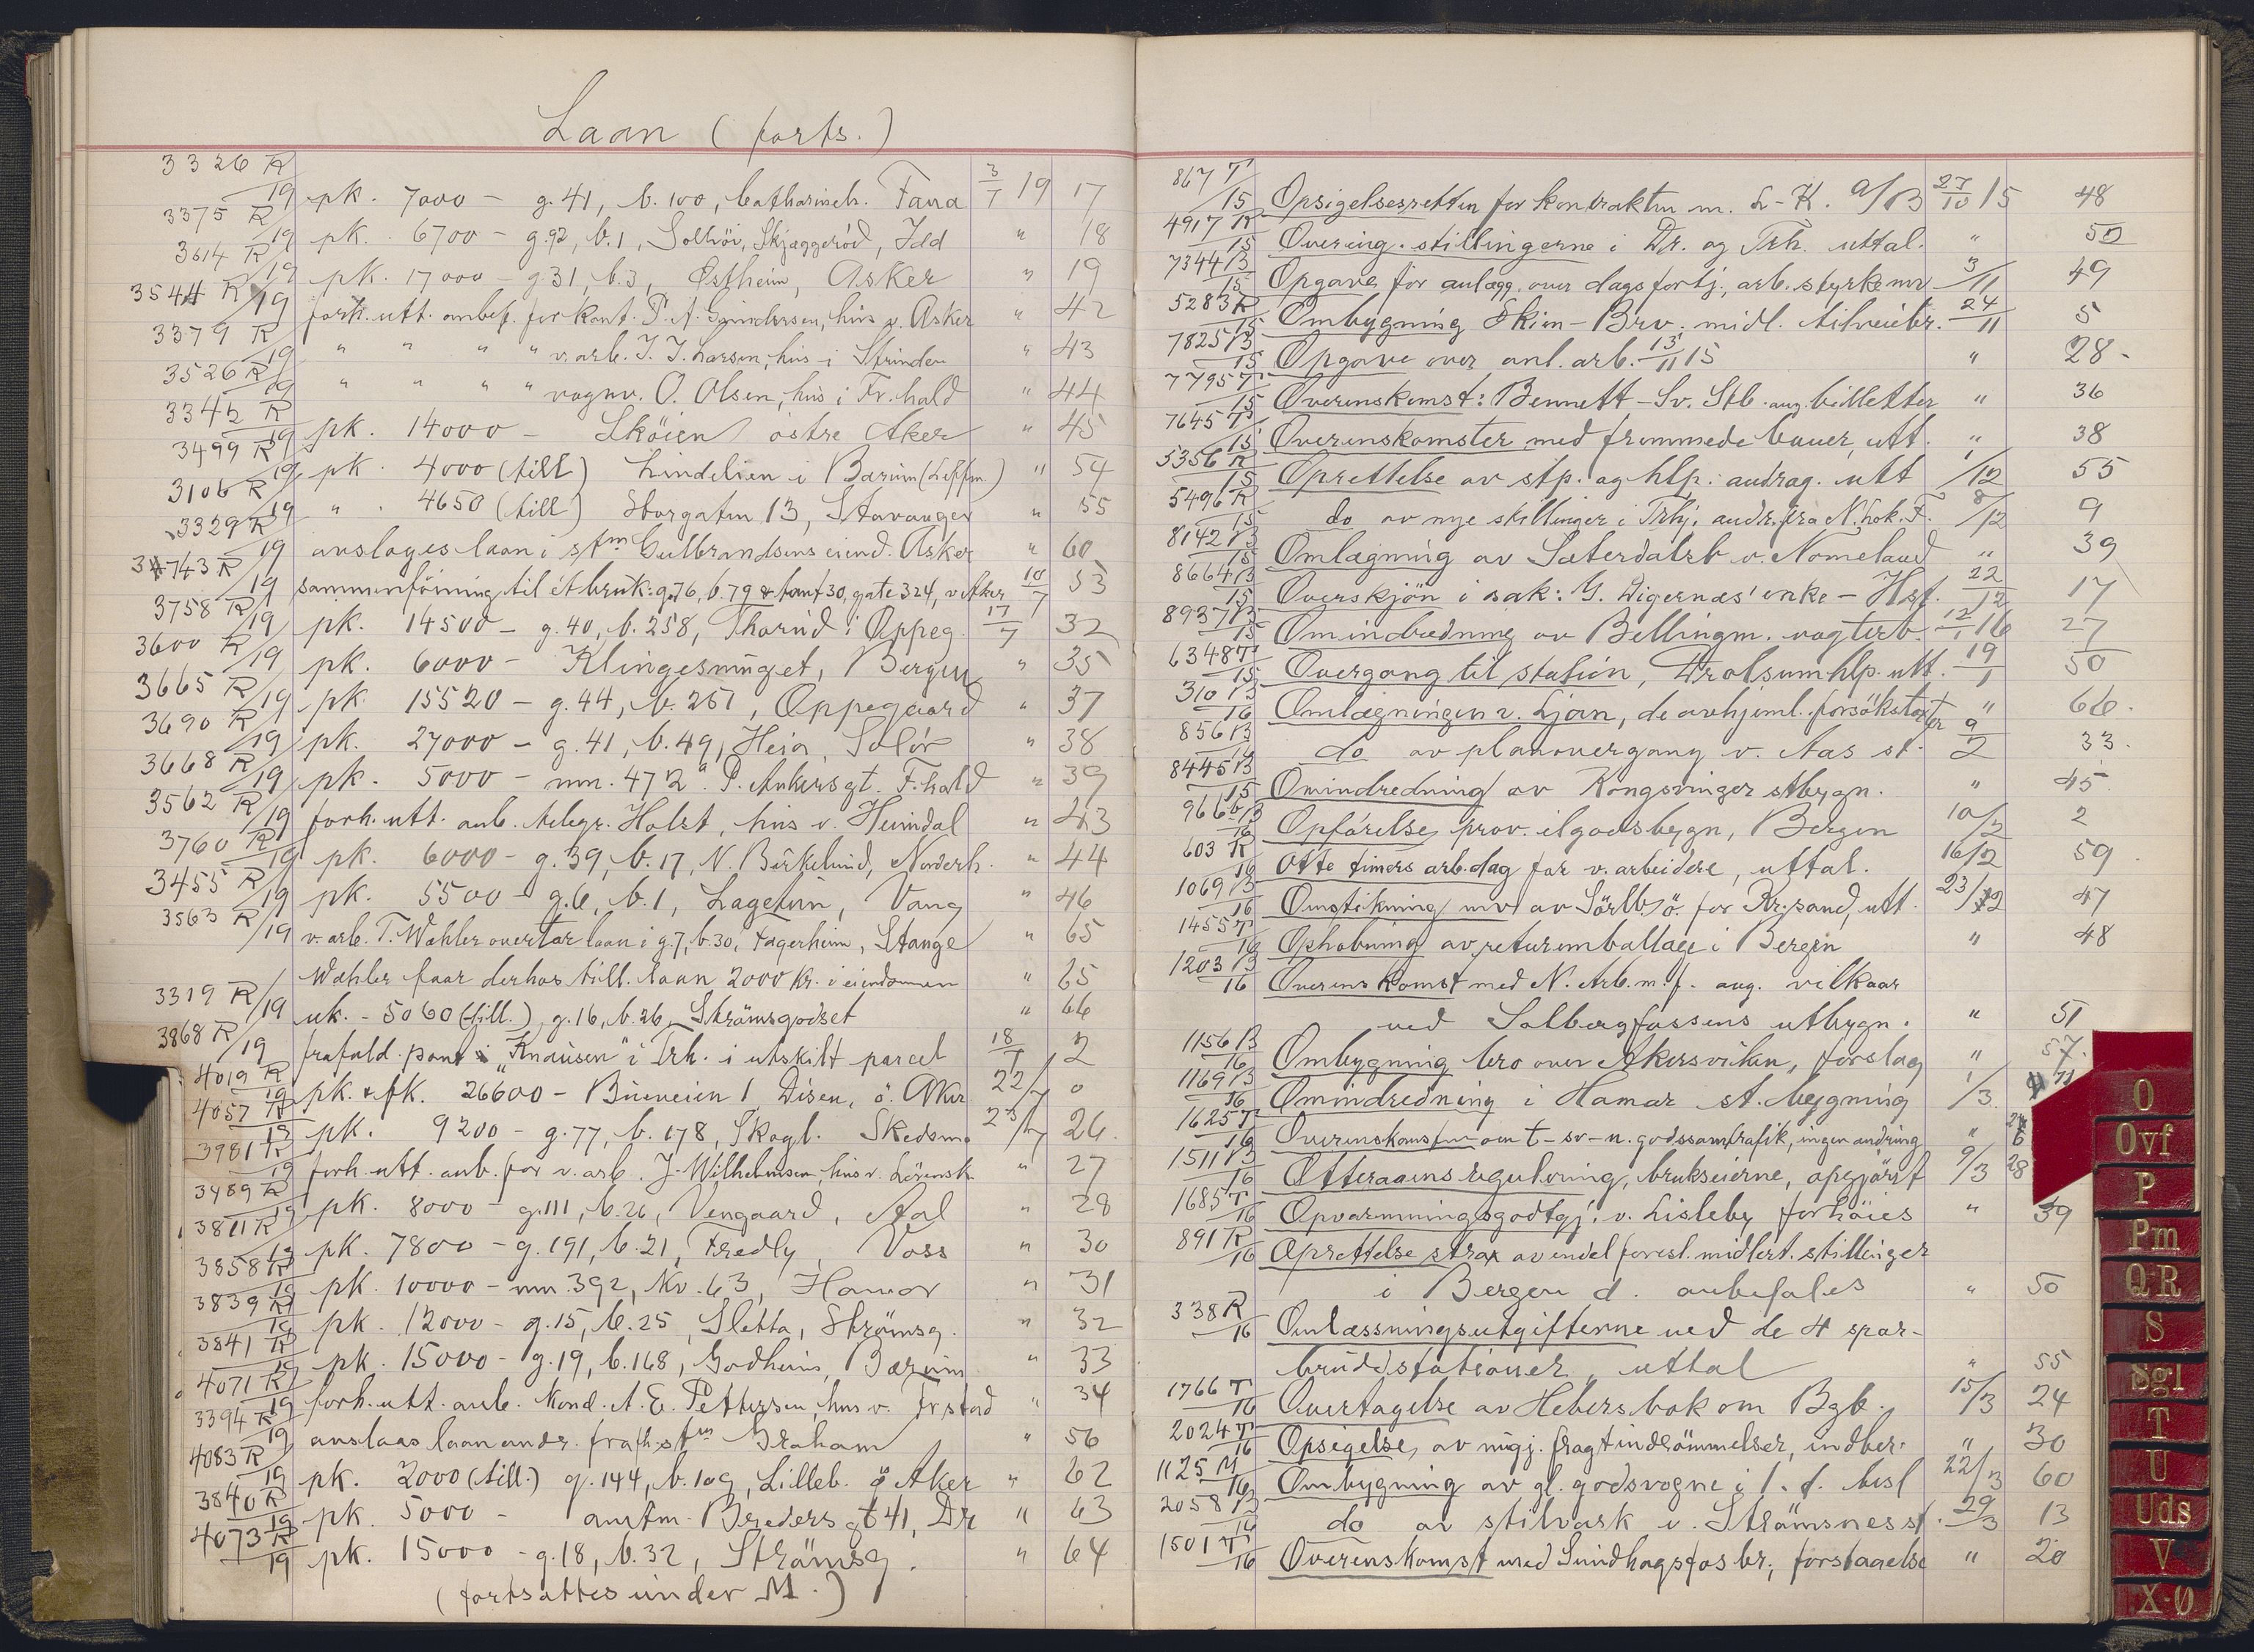 Laan (forts.)
3326 R/19 pk. 7000 – g. 41, b. 100, Catharineh. Fana 3/7 19 17
3375 R/19 pk. 6700 – g. 92, b. 1, Solhöi, Skjæggeröd, Idd " 18
3614 R/19 pk. 17000 – g. 31, b. 3, Østheim, Asker " 19
3544 R/19 forh. utt. anbef. for kont. P. A. Gundersen, hus v. Asker " 42
3379 R/19 " " " " v. arb. J. J. Larsen, hus i Strinden " 43
3526 R/19 " " " " vognv. O. Olsen, hus i Fr.hald " 44
3342 R/19 pk. 14000 – Sköien östre Aker " 45
3499 R/19 pk. 4000 (till) Lindelien i Bærum " 54
3106 R/19 " . 4650 (till) Storgaten 13, Stavanger " 55
3329 R/19 avslages laan i stm Gulbrandsens eiend. Asker " 60
3743 R/19 sammenföining til et bruk: g. 76, b. 79 & tomt 30, gate 324, v Aker 10/7 53
3758 R/19 pk. 14500 – g. 40, b. 258, Thorud i Oppeg. 17/7 32
3600 R/19 pk. 6000 – Klingesmuget, Bergen " 35
3665 R/19 pk. 15520 – g. 44, b. 251, Oppegaard " 37
3690 R/19 pk. 27000 – g. 41, b. 49, Heia, Solör " 38
3668 R/19 pk. 5000 – mn. 472a P. Ankersgt. F.hald " 39
3562 R/19 forh. utt. anb. telegr. Holst, hus v. Heimdal " 43
3760 R/19 pk. 6000 – g. 39, b. 17, N. Birkelund, Norderh. " 44
3455 R/19 pk. 5500 – g. 6, b. 1, Lagetun, Vang " 46
3563 R/19 v. arb. T. Wahler overtar laan i g. 7, b. 30, Fagerheim, Stange " 65
Wahler faar derhos till. laan 2000 kr. i eiendommen " 65
3319 R/19 uk. – 5060 (till.) g. 16, b. 26, Strömsgodset " 66
3868 R/19 frafald. pant i "Knausen" i Trh. i utskilt parcel 18/7 2
4019 R/19 pk. & fk. 26600 – Bueveien 1 Disen, ö. Aker 22/7 0
4057 R/19 pk. 9200 – g. 77, b. 178, Skogl. Skedsmo 23/7 26.
3981 R/19 forh. utt. anb. for v. arb. J. Wilhelmsen, hus v. Lörensk. " 27
3489 R/19 pk. 8000 – g. 111, b. 26, Vengaard, Aal " 28
3811 R/19 pk. 7800 – g. 191, b. 21, Fredly, Voss " 30
3858 R/19 pk. 10000 – mn. 392, Kv. 63, Hamar " 31
3839 R/19 pk. 12000 – g. 15, b. 25, Sletta, Strömsg. " 32
3841 R/19 pk. 15000 – g. 19, b. 168, Godheim, Bærum " 33
4071 R/19 forh. utt. anb. Kond. A. E. Pettersen, hus v. Fr.stad " 34
3394 R/19 avslaas laan andr. fra fh. stm Graham " 56
4083 R/19 pk. 2000 (till.) g. 144, b. 109, Lilleb. ö Aker " 62
3840 R/19 pk. 5000 – Bredersgt 41, Dr " 63
4073 R/19 pk. 15000 – g. 18, b. 32, Strömsg. " 64
(fortsattes under M.)
867 T/15 Opsigelsesretten for kontrakten m. L-K. A/B 27/10 15 48
4917 R/15 Overing. stillingerne i Dr. og Trh. uttal. " 50
7344 B/15 Opgave for anlægg. over dagsfortj., arb. styrke mv 3/11 49
5283 R/15 Ombygning Skien–Brv. midl. tilveiebr. 24/11 5
7825 B/15 Opgave over anl. arb. 13/11 15 " 28 –
7795 T/15 Overenskomst: Bennett – Sv. Stb. ang. billetter " 36
7645 T/15 Overenskomster med fremmede baner, utt. " 38
5356 R/15 Oprettelse av stp. og hlp. andrag. utt 1/12 55
5496 R/15 do av nye stillinger i Trhj. andr. fra N. Lok. F. 8/12 9
8142 B/15 Omlægning av Sæterdalsb v. Nomeland " 39
8664 B/15 Overskjön i sak: G. Digernæs' enke – Hst. 22/12 17
8937 B/15 Omindredning av Bellingm. vogterb. 12/1 16 27
6348 T/15 Overgang til station, Trolsum hlp. utt. 19/1 50
310 B/16 Omlægningen v. Ljan, de avhjeml. forsökstakster " 66.
856 B/16 do av planovergang v. Aas st. 9/2 33.
8445 B/15 Omindredning av Kongsvinger stbygn. " 45
966 B/16 Opförelse prov. ilgodsbygn, Bergen 10/2 2
603 R/16 Otte timers arb.dag for v. arbeidere, uttal. 16/2 59
1069 B/16 Omstikning mv av Sörlb ö. for Kr.sand, utt. 23/2 47
1455 T/16 Ophobning av returemballage i Bergen " 48
1203 B/16 Overenskomst med N. Arb. m. f. ang. vilkaar
ved Solbergfossens utbygn. " 51
1156 B/16 Ombygning bro over Akersviken, forslag " 57.
1169 B/16 Omindredning i Hamar st. bygning 1/3. 11
1625 T/16 Overenskomsten om t-sv-n. godssamtrafik, ingen ændring " 6
1511 B/16 Otteraaens regulering, brukseierne, opgjörst 9/3 28
1685 T/16 Opvarmningsgodtgj. v. Lisleby forhöies " 39
891 R/16 Oprettelse strax av endel foresl. midlert. stillinger
i Bergen d. anbefales " 50
338 R/16 Omlæssningsutgifterne ved de 4 spor-
bruddstationer, uttal " 55
1766 T/16 Overtagelse av Hebers bok om Bgb. 15/3 24
2024 T/16 Opsigelse av mgj. fragtindrömmelser, indber. " 30
1125 M/16 Ombygning av gl. godsvogne i 1. d. besl 22/3 60
2058 B/16 do av stilvask v. Strömsnes st. 29/3 13
1501 T/16 Overenskomst med Sundhagsfos br; forstagelse " 20
O
Ovf
P
Pm
Q·R
S
Sgl
T
U
Uds
V
X-Ø